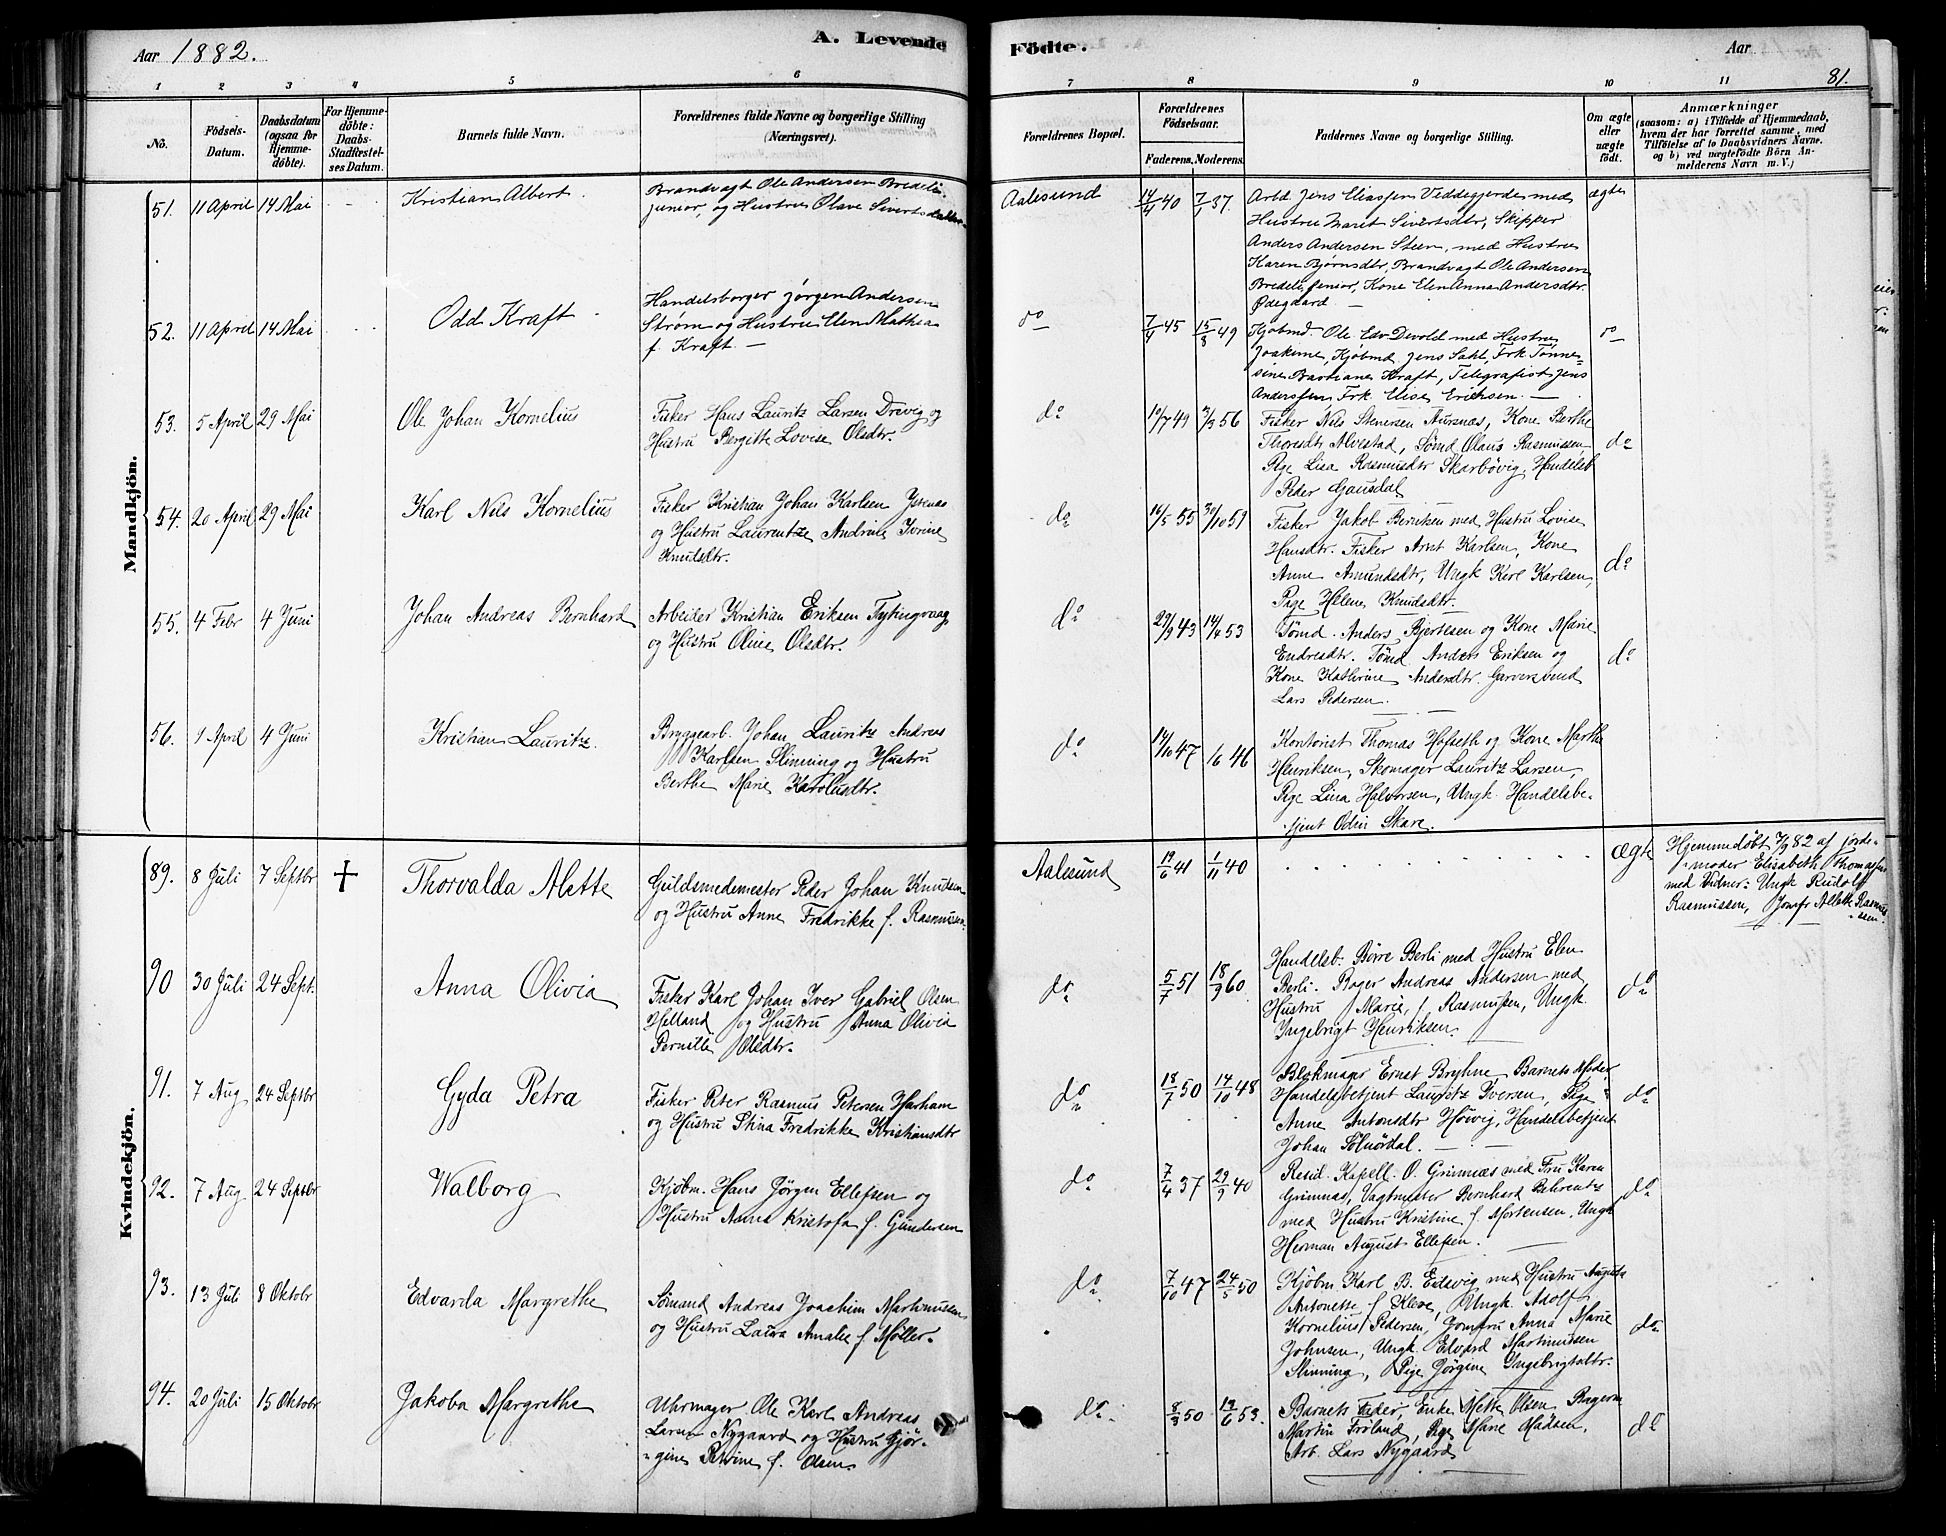 Aar 1882.
A. Levende Födte.
Aar
81.
1 2 3 4 5 6 7 8 9 10 11
No.
Födsels-Datum.
Daabsdatum (ogsaa for Hjemmedöbte).
For Hjemmedöbte: Daabs-Stadfæstelses Datum.
Barnets fulde Navn.
Forældrenes fulde Navne og borgerlige Stilling (Næringsvei).
Forældrenes Bopæl.
Forældrenes Födselsaar.
Faderens. Moderens.
Faddernes Navne og borgerlige Stilling.
Om ægte eller uægte födt.
Anmærkninger
(saasom: a) i Tilfælde af Hjemmedaab,
hvem der har forrettet samme, med
Tilföielse af to Daabsvidners Navne.
og b) ved uægtefödte Börn Anmelderens Navn m. V.)
Mandkjön.
51. 11 April 14 Mai Kristian Albert.
Brandvagt Ole Andersen Bredeli
junior, og Hustru Olave Sivertsdatter
Aalesund 14/4 40 7/1 37.
Arbd. Jens Eliassen Veddegjerde med
Hustru Marit Sivertsdtr, Skipper
Anders Andersen Steen, med Hustru
Karen Bjørnsdtr, Brandvagt Ole Andersen
Bredeli senior, Kone Elen Anna Andersdtr.
Ødegaard. —
ægte
52. 11 April 14 Mai Odd Kraft
Handelsborger Jørgen Andersen
Strøm og Hustru Elen Mathea
f. Kraft. —
do 7/4 45 15/8 49
Kjøbmd. Ole Edv Devold med Hustru
Joakime, Kjöbmd Jens Sahl, Frk Tønne-
sine Bastiane Kraft, Telegrafist Jens
Anderssen Frk Elise Erichsen. —
do
53. 5 April 29 Mai Ole Johan Kornelius
Fisker Hans Lauritz Larsen Drevig og
Hustru Bergitte Lovise Olsdtr.
do 10/7 49 3/3 56
Fisker Nils Stenersen Aursnæs, Kone Berthe
Thoresdtr Alvestad, Sömd Olaus Rasmussen
Pige Lisa Rasmusdtr Skarbövig, Handelsb
Peder Gausdal
do
54. 20 April 29 Mai Karl Nils Kornelius
Fisker Kristian Johan Karlsen Ystenæs
og Hustru Laurentze Andrine Ivrine
Knudsdtr.
do 16/5 55 30/10 51
Fisker Jakob Berntsen med Hustru Lovise
Hansdtr. Fisker Arnt Karlsen, Kone
Anne Amundsdtr, Ungk Karl Karlsen,
Pige Helene Knudsdtr.
do
55. 4 Febr 4 Juni Johan Andreas Bernhard
Arbeider Kristian Eriksen Tytingvaag
og Hustru Oline Olsdtr.
do 29/9 43 14/4 53
Tömd. Anders Bjertesen og Kone Marie
Endresdtr. Tömd Anders Eriksen og
Kone Kathrine Andersdtr. Garversvend
Lars Pedersen.
do
56. 1 April 4 Juni Kristian Lauritz.
Bryggearb. Johan Lauritz Andreas
Karlsen Slinning og Hustru
Berthe Marie Karolusdtr.
do 14/10 47 1/6 46
Kontorist Thomas Hofseth og Kone Marthe
Henriksen, Skomager Lauritz Larsen,
Pige Lina Halvorsen, Ungk. Handelsbe-
tjent Odin Skare.
Kvindekjön.
89. 8 Juli 7 Septbr + Thorvalda Alette
Guldsmedmester Peder Johan Knudsen
og Hustru Anne Fredrikke f. Rasmussen.
Aalesund 19/6 41 1/11 40
ægte
Hjemmedøbt 7/9 82 af jorde-
moder Elisabeth Thomassen
med Vidner: Ungk Rudolf
Rasmussen, Jomfr Alette Rasmus-
sen
90 30 Juli 24 Sept. Anna Olivia
Fisker Karl Johan Iver Gabriel Olsen
Helland og Hustru Anna Olivia
Pernille Olsdtr.
do 5/7 51 18/9 60
Handelsb. Börre Berli med Hustru Elen
Berli. Bager Andreas Andersen med
Hustru Marie f. Rasmussen, Ungk.
Ingebrigt Henriksen.
do
91. 7 Aug 24 Septbr Gyda Petra
Fisker Peter Rasmus Petersen Harham
og Hustru Stina Fredrikke Kristiansdtr
do 18/7 50 14/10 48
Blokmager Ernst Bryhne Barnets Moder
Handelsbetjent Lauritz Iversen, Pige
Anne Antonsdtr Hövig, Handelsbetjent
Johan Sölnördal. —
do
92. 7 Aug 24 Septbr Walborg
Kjöbm. Hans Jörgen Ellefsen og
Hustru Anna Kristofa f. Gundersen
do 7/4 37 29/9 40
Resid. Kapell. O. Grimnæs med Fru Karen
Grimnæs, Vagtmester Bernhard Behrentz
med Hustru Kristine f. Mortensen, Ungk
Herman August Ellefsen.
do
93. 13 Juli 8 Oktobr Edvarda Margrethe
Sömand Andreas Joachim Martinussen
og Hustru Laura Amalie f. Møller.
do 7/10 47 24/5 50
Kjöbm. Karl B. Eidsvig med Hustru Augusta
Antonette f. Kleve, Ungk. Adolf
Kornelius Pedersen, Jomfru Anna Marie
Johnsen, Ungk. Edvard Martinussen
Slinning, Pige Jörgine Ingebrigtsdtr.
do
94. 20 Juli 15 Oktobr Jakoba Margrethe
Uhrmager Ole Karl Andreas
Larsen Nygaard og Hustru Gjör-
gine Petrine f. Olsen
do. 8/3 50 12/6 53.
Barnets Fader, Enke Mette Olsen Bagerm
Martin Fröland, Pige Marie Madsen,
Arb. Lars Nygaard
do